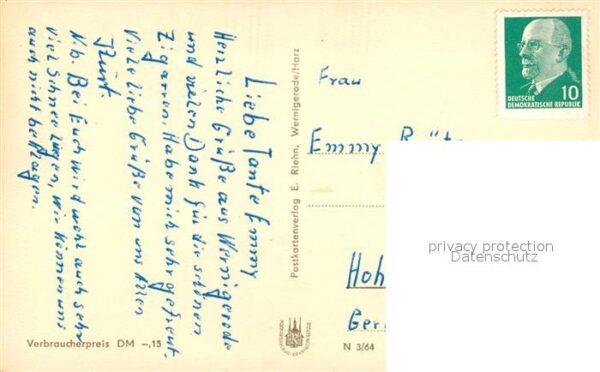 Liebe Tante Emmy
Herzliche Grüße aus Wernigerode
und vielen Dank für die schönen
Zigarren. Habe mich sehr gefreut.
Viele liebe Grüße von uns Allen
Kurt.
N.b. Bei Euch wird wohl auch sehr
viel Schnee liegen, wir können uns
auch nicht beklagen.
Verbraucherpreis DM –,15
Postkartenverlag E. Riehn, Wernigerode/Harz
N 3/64
10
DEUTSCHE
DEMOKRATISCHE REPUBLIK
Frau
Emmy
Hoh
Ger
privacy protection
Datenschutz